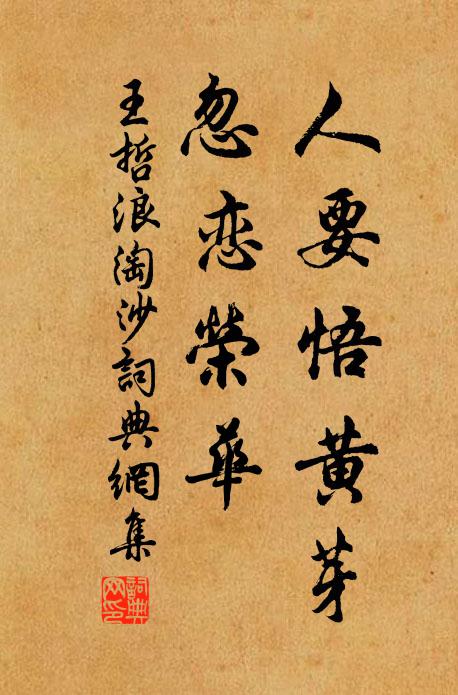 人要悟黄芽
忽恋榮華
王哲浪淘沙詞典網集
詞典网印